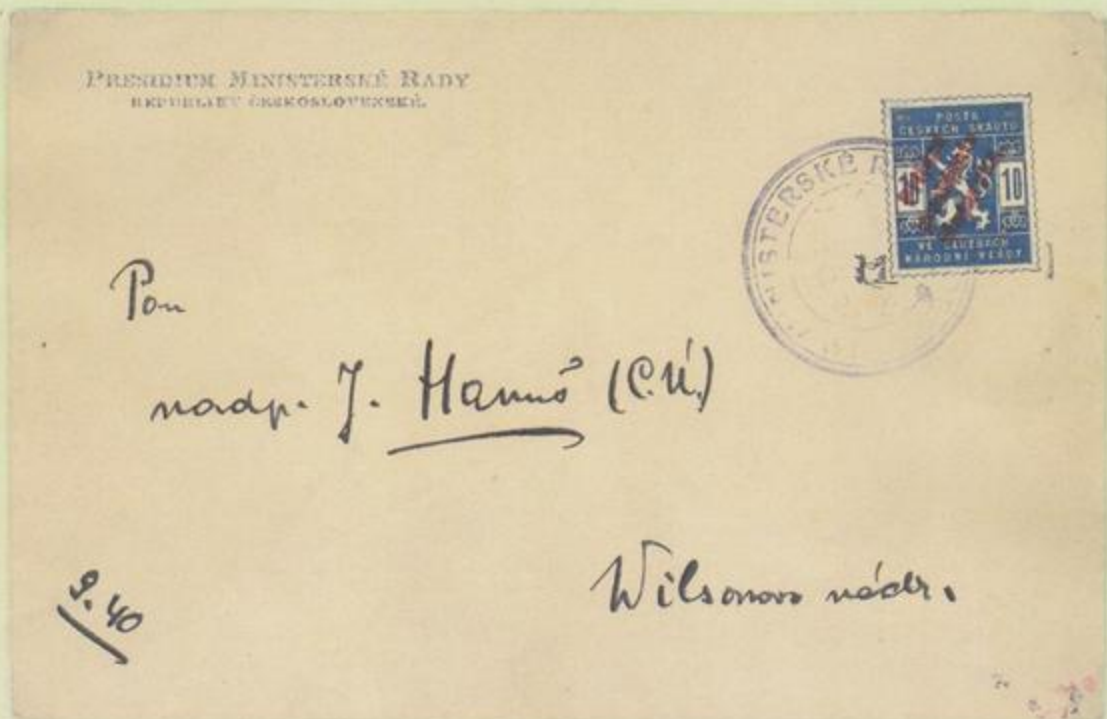 PRESIDIUM MINISTERSKÉ RADY
REPUBLIKY ČESKOSLOVENSKÉ.
POŠTA
ČESKÝCH SKAUTŮ
10 10
VE SLUŽBÁCH
NÁRODNÍ VLÁDY
MINISTERSKÉ R
Pan
nadp. J. Hanuš (C.Ú.)
Wilsonovo nádr.
9.40